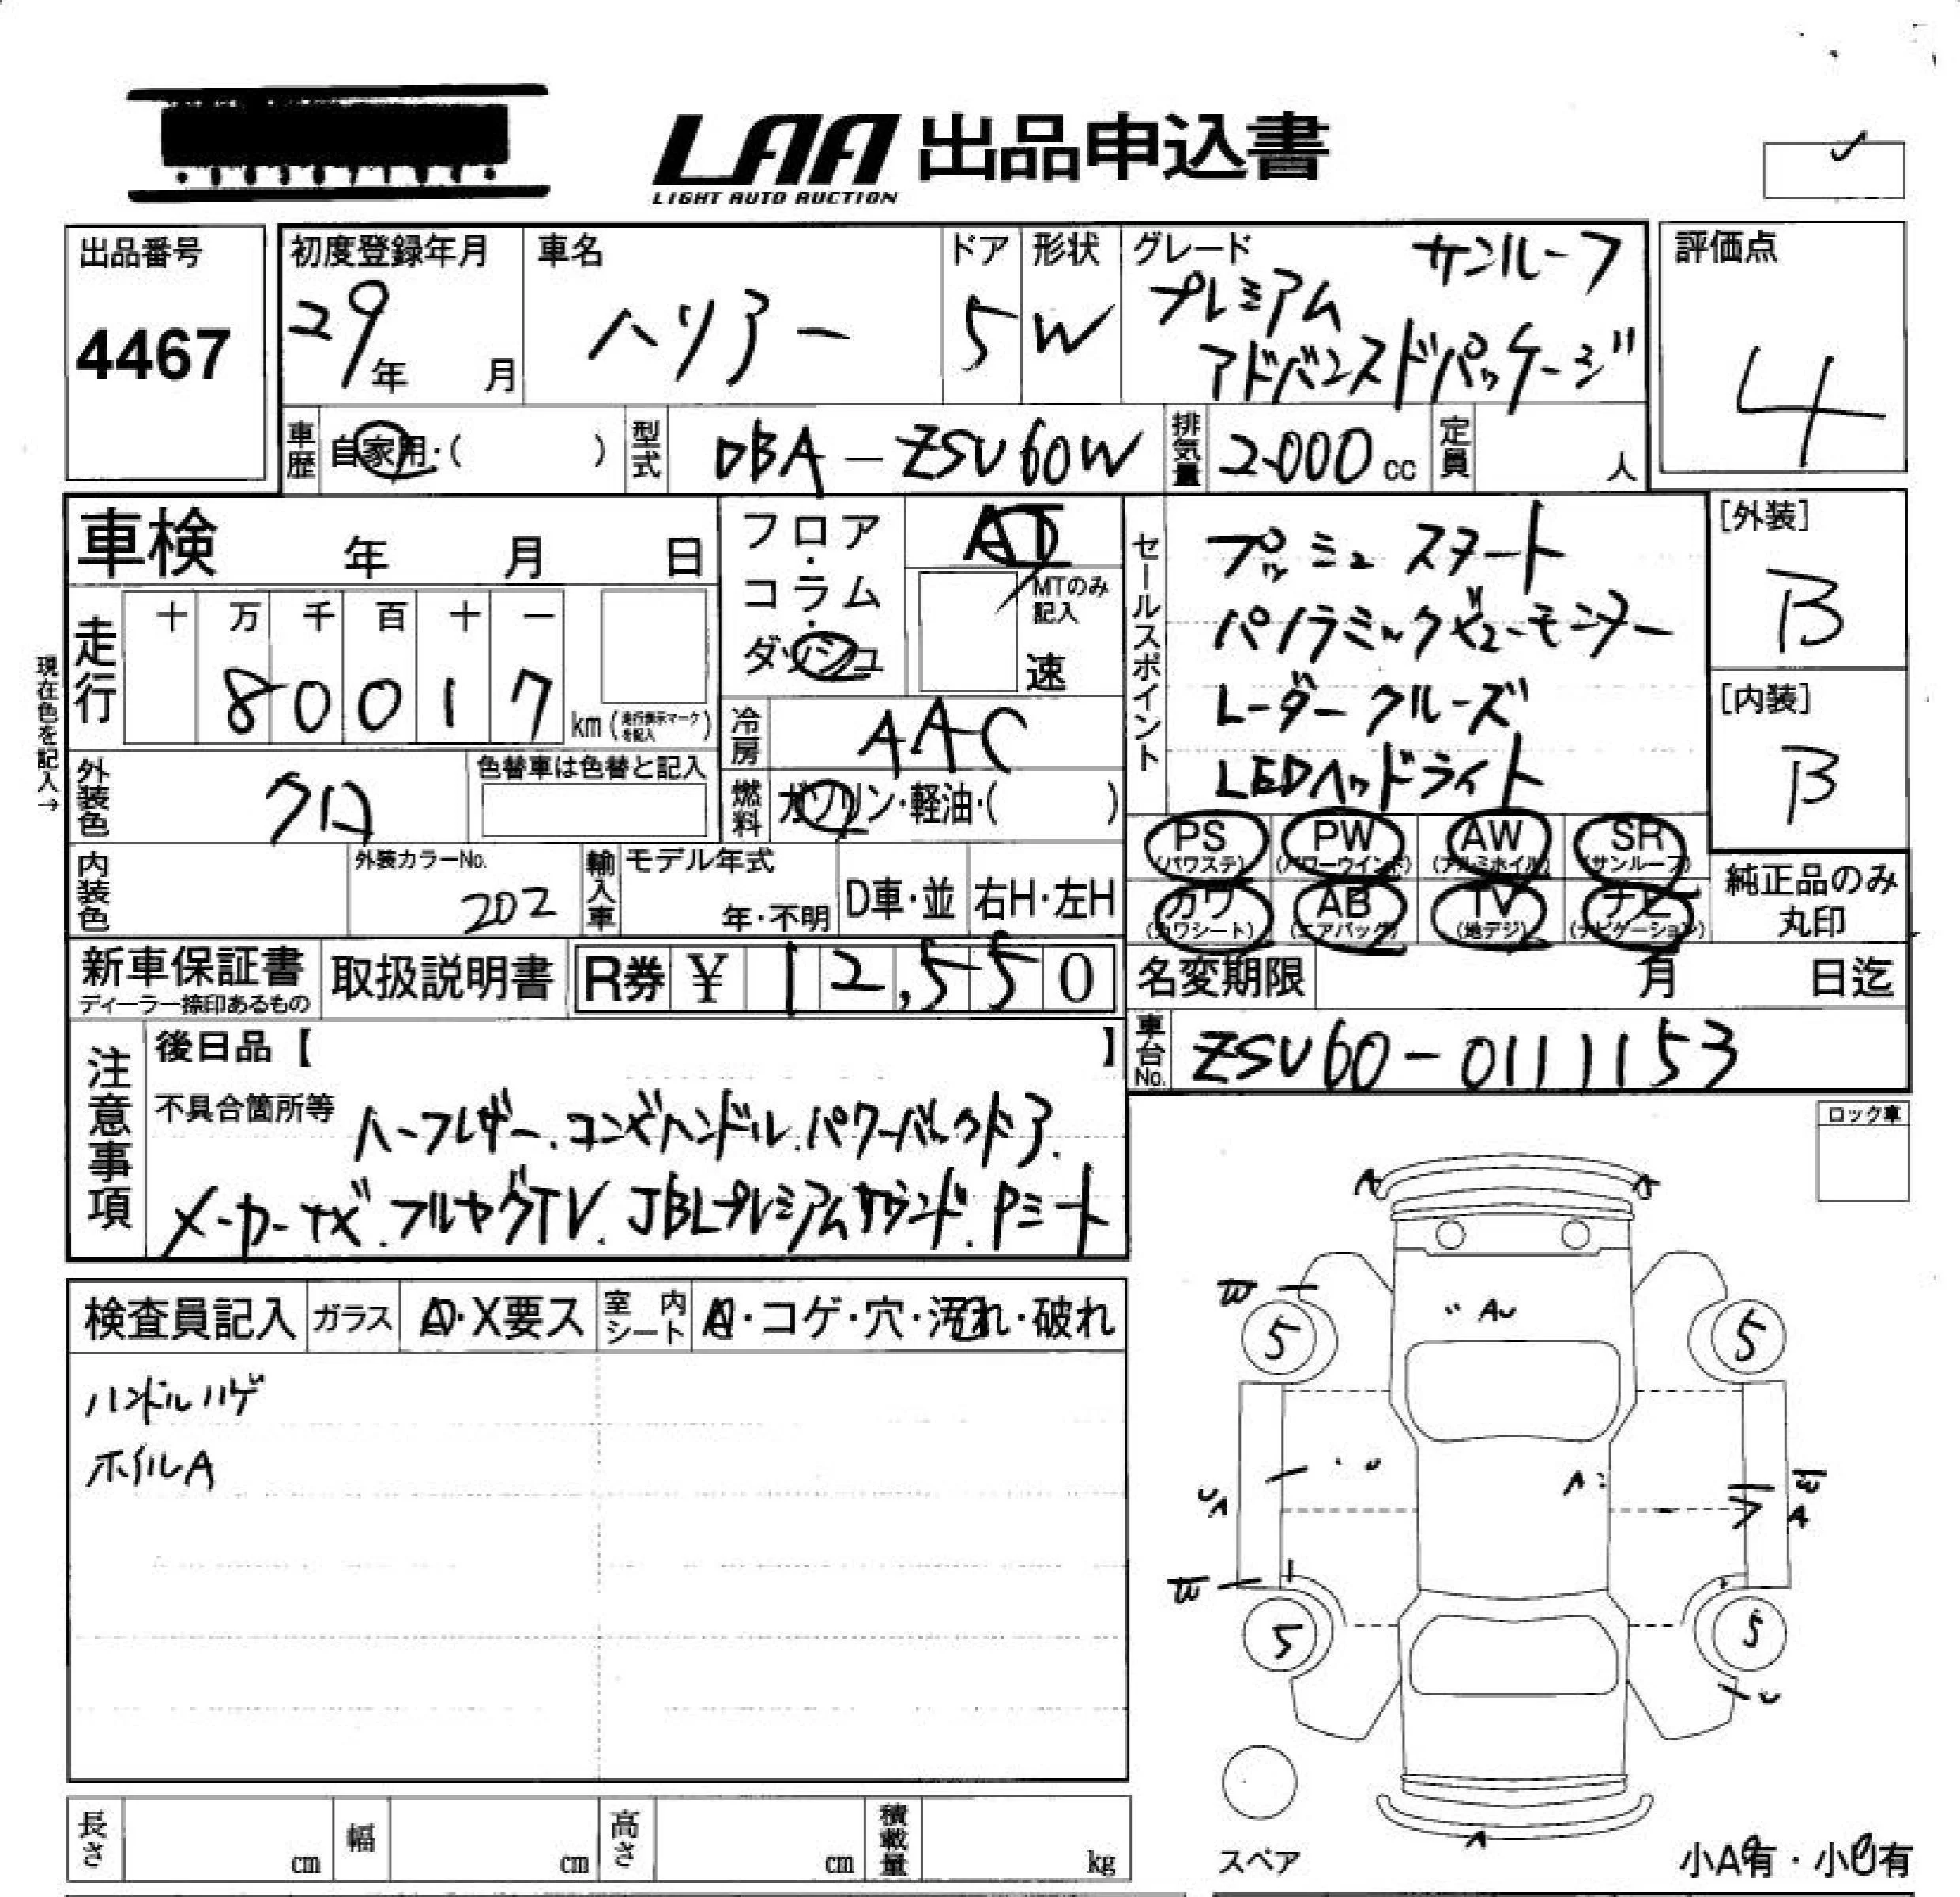 LAA 出品申込書
LIGHT AUTO AUCTION
出品番号
4467
初度登録年月
29年 月
車名
ハリアー
ドア
5
形状
W
グレード
サンルーフ
プレミアム
アドバンスドパッケージ
評価点
4
車歴
自家用・( )
型式
DBA-ZSU60W
排気量
2000 cc
定員
人
車検 年 月 日
走行
十 万 千 百 十 一
8 0 0 1 7
km (走行表示マークを記入)
現在色を記入→
フロア・コラム・ダッシュ
AT
MTのみ記入
速
冷房
AAC
燃料
ガソリン・軽油・( )
外装色
クロ
色替車は色替と記入
内装色
外装カラーNo.
202
輸入車
モデル年式
年・不明
D車・並
右H・左H
セールスポイント
プッシュスタート
パノラミックビューモニター
レーダークルーズ
LEDヘッドライト
[外装]
B
[内装]
B
PS (パワステ)
PW (パワーウインド)
AW (アルミホイル)
SR (サンルーフ)
カワ (カワシート)
AB (エアバック)
TV (地デジ)
ナビ (ナビゲーション)
純正品のみ
丸印
新車保証書
ディーラー捺印あるもの
取扱説明書
R券 ¥ 12,550
名変期限 月 日迄
車台No.
ZSU60-0111153
注意事項
後日品【 】
不具合箇所等
ハーフレザー、コンビハンドル、パワーバックドア、
メーカーナビ、フルセグTV、JBLプレミアムサウンド、Pシート
ロック車
検査員記入
ガラス
A・X要ス
室内シート
・コゲ・穴・汚れ・破れ
ハンドルハゲ
ホイルA
A
A
W
5
5
AU
U
A
UA
A
W
5
5
U
A
スペア
小A有・小U有
長さ cm
幅 cm
高さ cm
積載量 kg